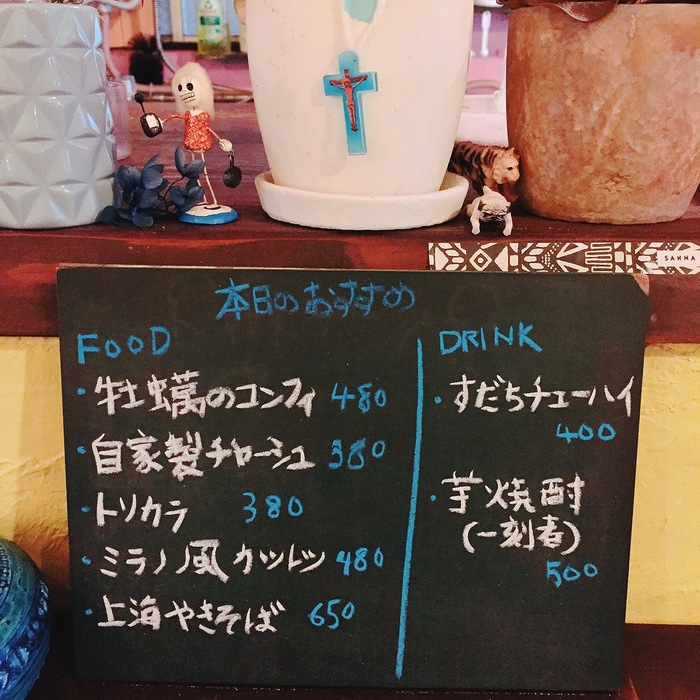 本日のおすすめ
FOOD
・牡蠣のコンフィ 480
・自家製チャーシュ 380
・トリカラ 380
・ミラノ風カツレツ 480
・上海やきそば 650
DRINK
・すだちチューハイ
400
・芋焼酎
(一刻者)
500
SANNA